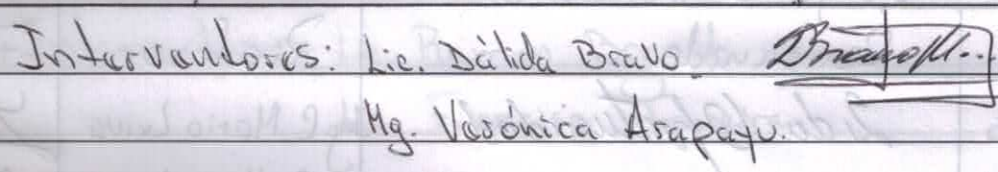 Interventores: Lic. Dálida Bravo
Mg. Verónica Arapayu.